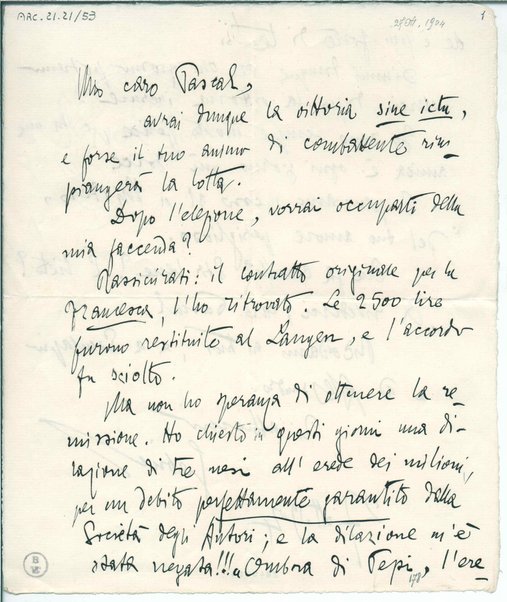 ARC.21.21/53
1904
1
Mio caro Pascal,
avrai dunque la vittoria sine ictu,
e forse il tuo animo di combattente rim-
piangerà la lotta.
Dopo l'elezione, vorrai occuparti della
mia faccenda?
Rassicurati: il contratto originale per la
Francesca, l'ho ritrovato. Le 2500 lire
furono restituite al Langen, e l'accordo
fu sciolto.
Ma non ho speranza di ottenere la re-
missione. Ho chiesto in questi giorni una di-
lazione di tre mesi all'erede dei milioni,
per un debito perfettamente garantito dalla
Società degli Autori; e la dilazione m'è
stata negata!!! Ombra di Pepi, l'ere